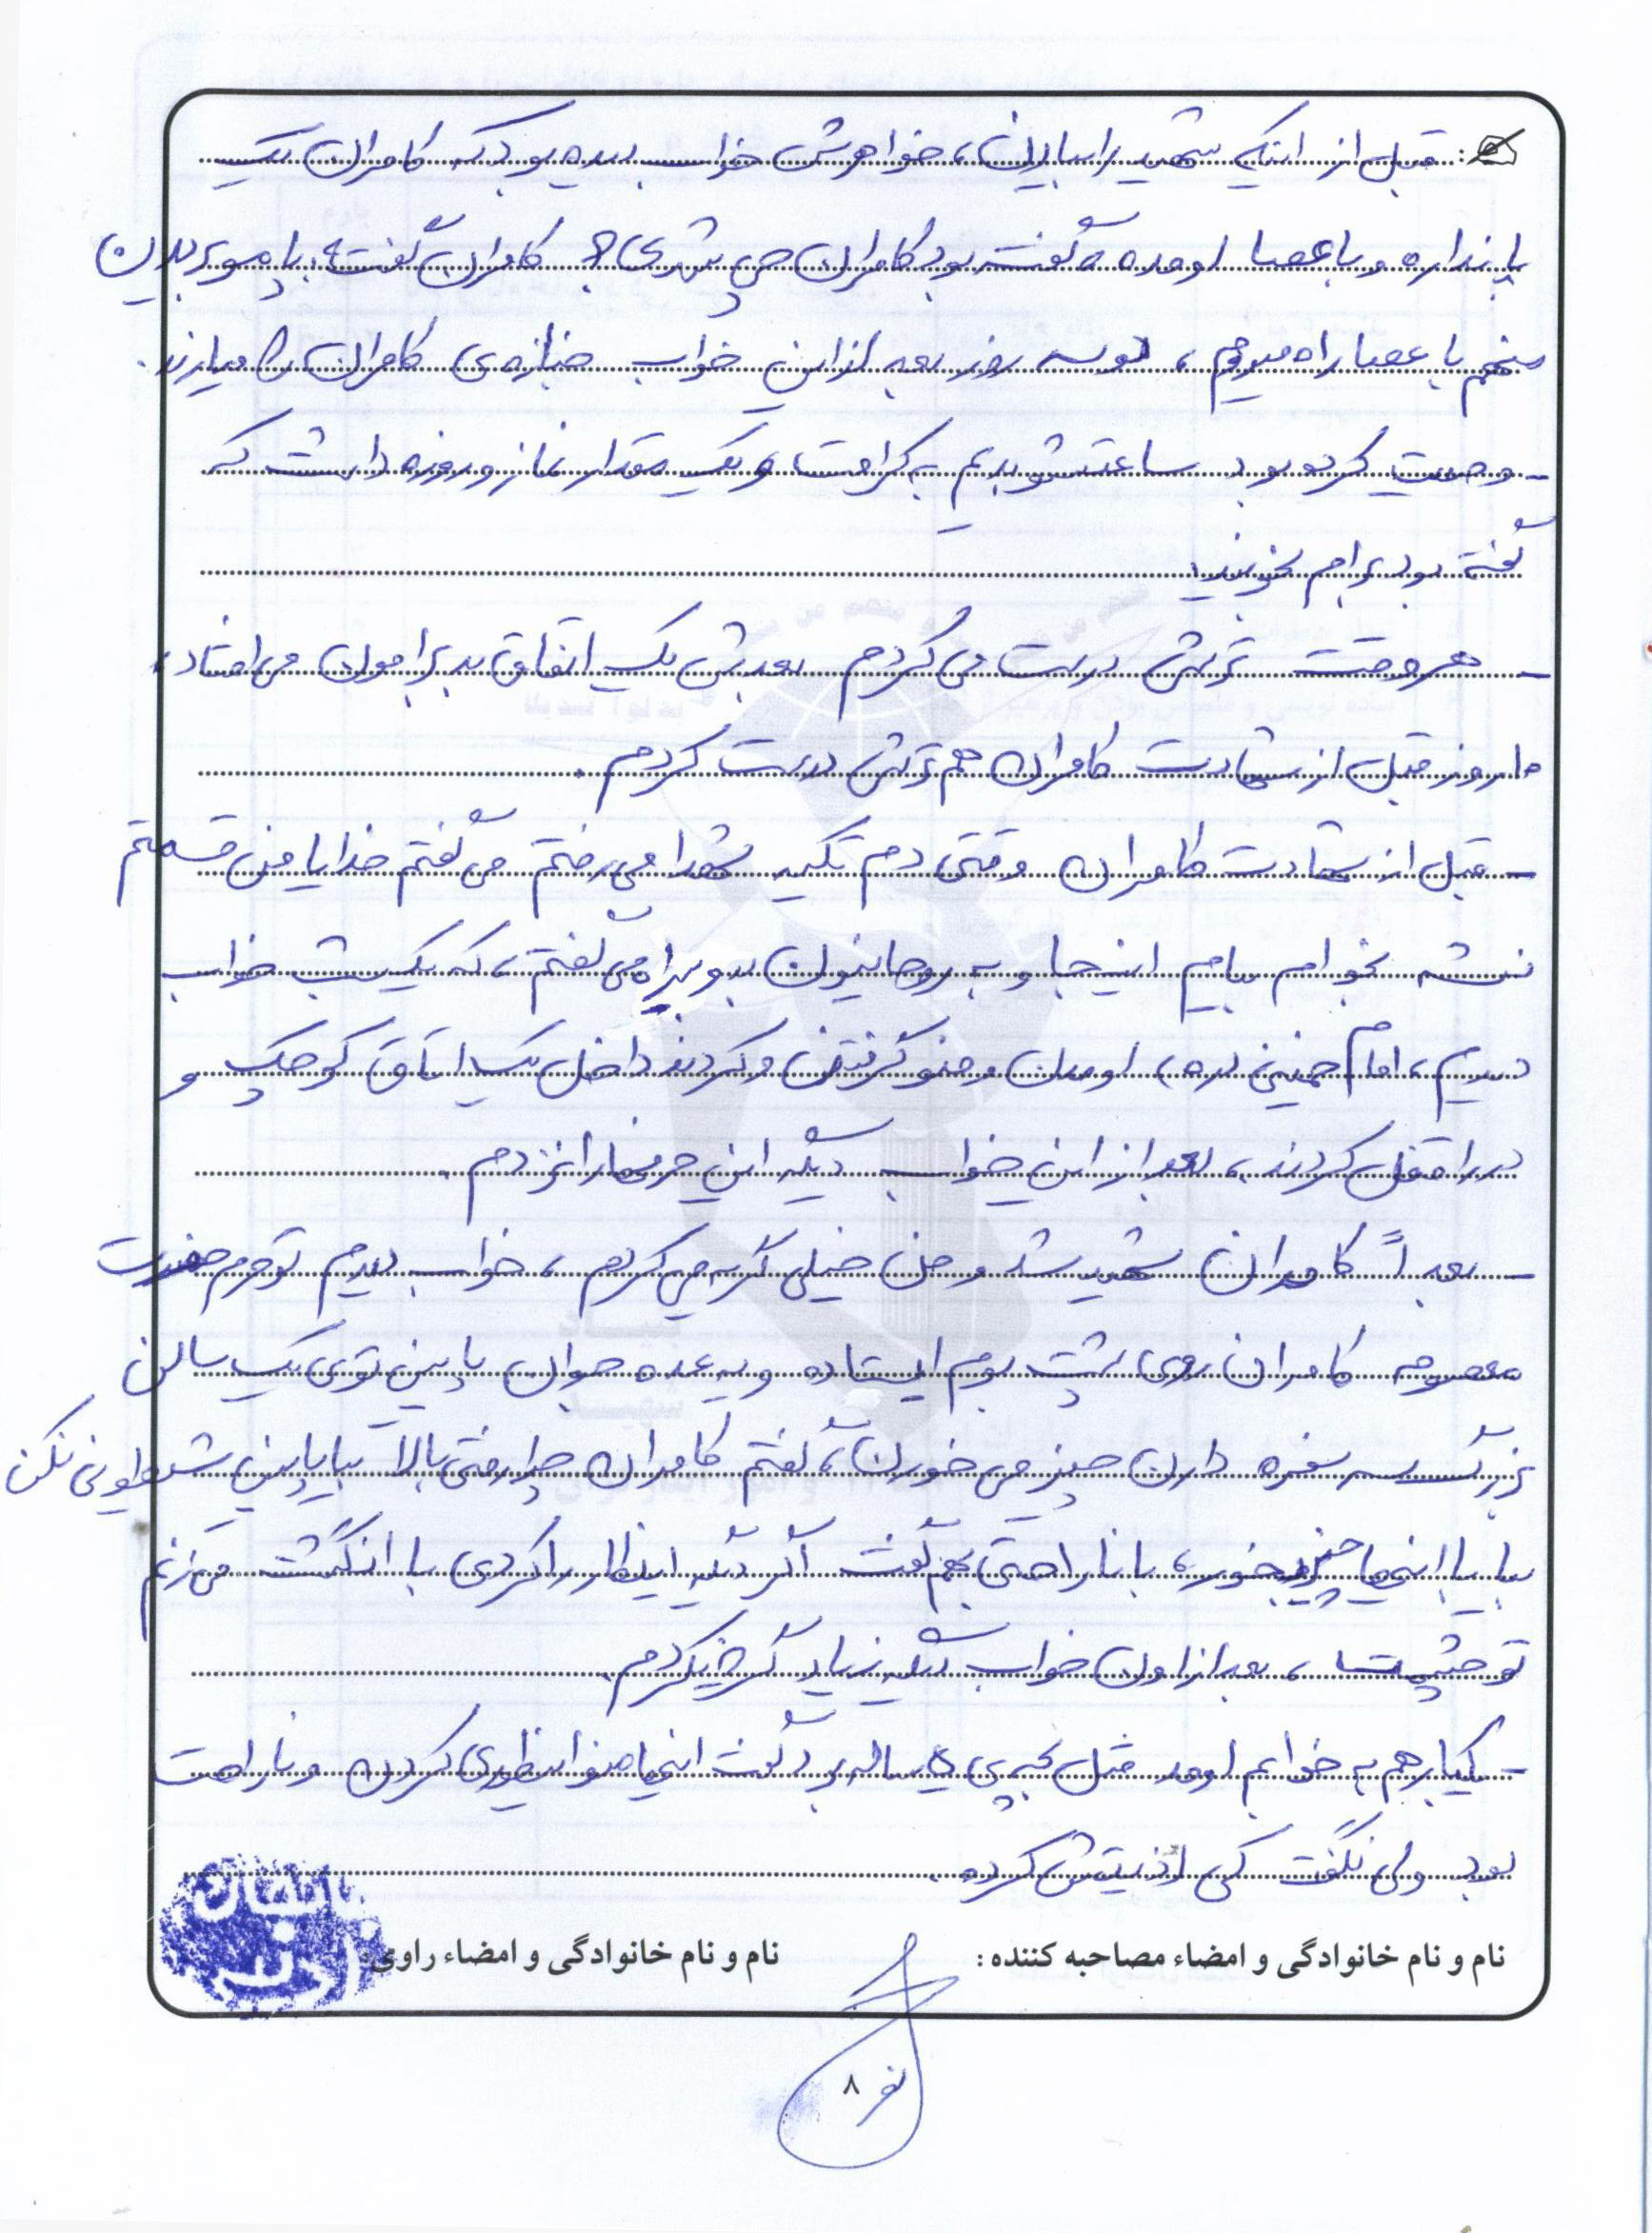 قبل از اینکه شهید را بیارن، خواهرش خواب دیده بود که کامران یک
پا نداره و با عصا اومده و گفته بود کامران چی شدی؟ کامران گفت، پامو بریدن
منهم با عصا راه میرم، دو سه روز بعد از این خواب جنازه‌ی کامران را میارند.
- وصیت کرده بود ساعتشو بدیم به کرامت و یک مقدار نماز و روزه داشت که
گفته بود برام بخونید.
- هر وقت ترشی درست می کردم بعدش یک اتفاق بد برامون می افتاد،
۱۰ روز قبل از شهادت کامران هم ترشی درست کردم.
- قبل از شهادت کامران وقتی دم تکیه شهدا می رفتم می گفتم خدایا من قسمتم
نشه بخوام بیام اینجا و به روحانیون بد و بیراه می گفتم، که یک شب خواب
دیدم، امام خمینی (ره) اومدن و منو گرفتن و کردند داخل یک اتاق کوچک و
در را قفل کردند، بعد از این خواب دیگه این حرفها را نزدم.
- بعداً کامران شهید شد و من خیلی گریه می کردم، خواب دیدم تو حرم حضرت
معصومه کامران روی پشت بوم ایستاده و یه عده جوان پایین توی یک سالن
بزرگ سر سفره دارن چیز می خورن، گفتم کامران چرا رفتی بالا بیا پایین شیطونی نکن
بیا با اینها چیز بخور، با ناراحتی بهم گفت اگر دیگه اینکار را کردی با انگشت می زنم
تو چشمت، بعد از اون خواب دیگه زیاد گریه نکردم.
- یکبار هم به خوابم اومد مثل بچه‌ی ۵ ساله بود گفت اینها منو اینطوری کردن و ناراحت
بود ولی نگفت کی اذیتش کرده.
نام و نام خانوادگی و امضاء مصاحبه کننده: نام و نام خانوادگی و امضاء راوی:
۸